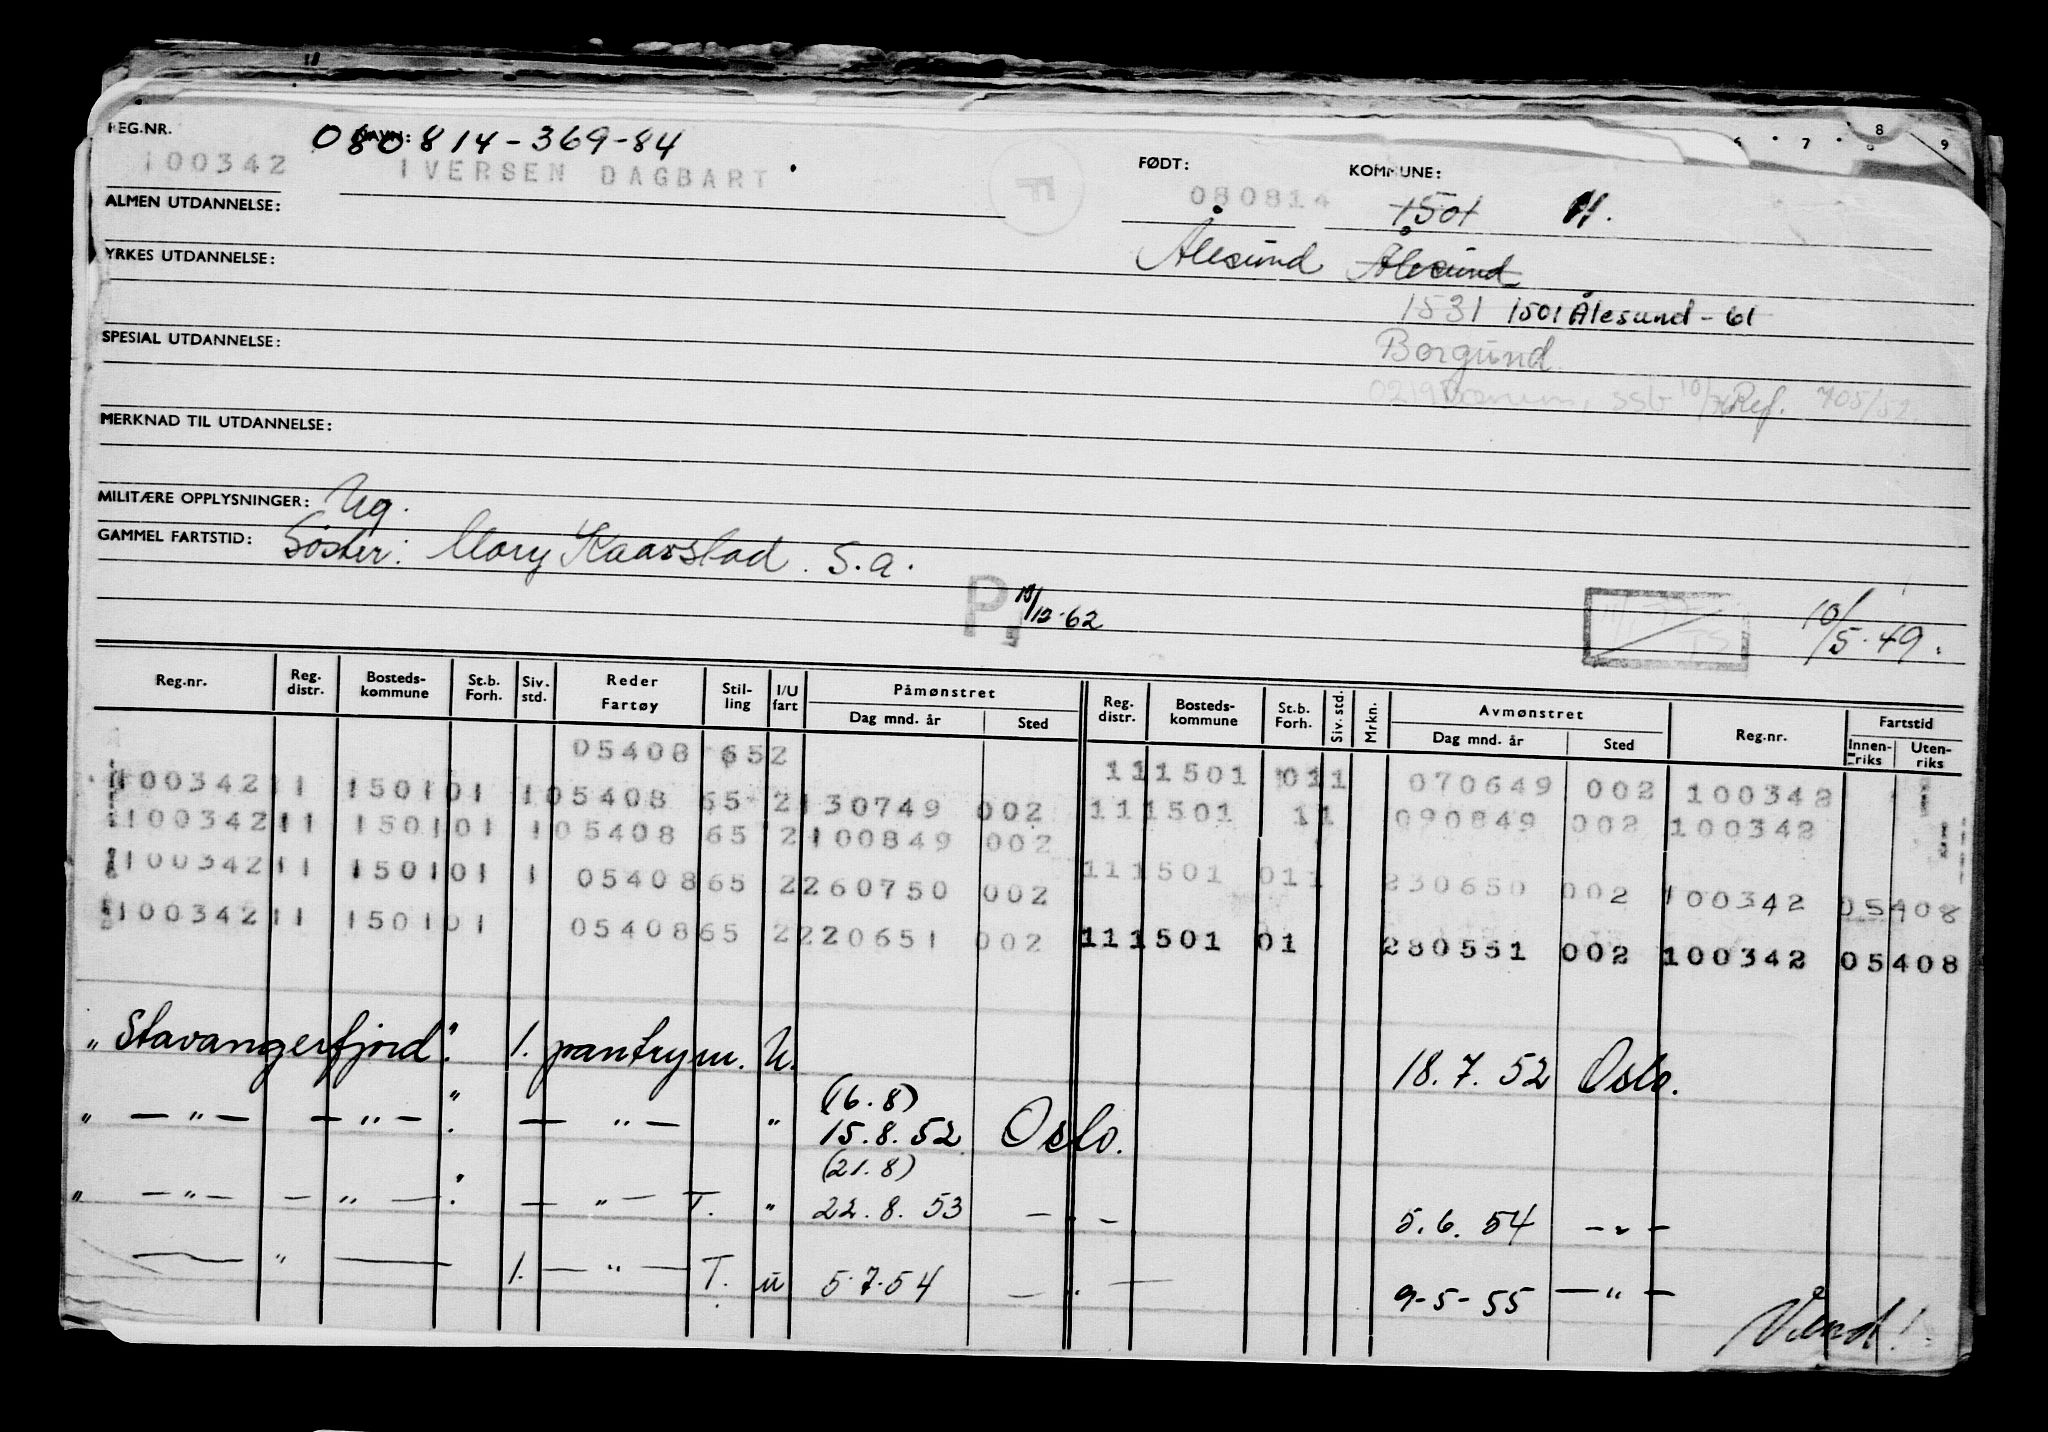 REG.NR. NAVN: 080814-369-84 FØDT: KOMMUNE: 6 7 8 9
100342 IVERSEN DAGBART F 080814 1501 11.
ALMEN UTDANNELSE:
Ålesund Ålesund
YRKES UTDANNELSE:
1531 1501 Ålesund - 61
SPESIAL UTDANNELSE:
Borgund.
0219 Bærum, ssb Ref. 705/52
MERKNAD TIL UTDANNELSE:
MILITÆRE OPPLYSNINGER: Ug.
GAMMEL FARTSTID: Søster: Mary Kaarstad. S.a.
P. 10/12-62 10/5.49.
Reg.nr. Reg. distr. Bosteds-kommune St.b. Forh. Siv. std. Reder Fartøy Stil-ling I/U fart Påmønstret Dag mnd. år Sted Reg. distr. Bosteds-kommune St.b. Forh. Siv. std. Mrkn. Avmønstret Dag mnd. år Sted Reg.nr. Fartstid Innen-riks Uten-riks
05408 652 111501 011 070649 002 100342
100342 11 1501 01 1 05408 65 2 130749 002 111501 11 090849 002 100342
100342 11 1501 01 1 05408 65 2 100849 002
100342 11 1501 01 1 05408 65 2 260750 002 111501 011 230650 002 100342 05408
100342 11 1501 01 05408 65 2 220651 002 111501 01 280551 002 100342 05408
„Stavangerfjord". 1. pantrym. U. 18.7.52 Oslo.
(16.8)
„ — " — — " — ". — " — " 15.8.52 Oslo.
(21.8)
„ — " — — " — ". — " — T. " 22.8.53 — " — 5.6.54 — " —
— " — 1. — " — T. u 5.7.54 — " — 9-5-55 — " —
Vend!